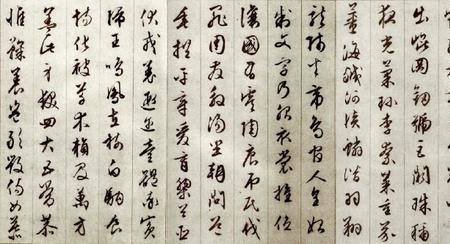 出崑岡劍號巨闕珠稱
夜光菓珍李柰菜重芥
薑海鹹河淡鱗潛羽翔
龍師火帝鳥官人皇始
制文字乃服衣裳推位
讓國有虞陶唐弔民伐
罪周發殷湯坐朝問道
垂拱平章愛育黎首臣
伏戎羌遐邇壹體率賓
歸王鳴鳳在樹白駒食
場化被草木賴及萬方
蓋此身髮四大五常恭
惟鞠養豈敢毀傷女慕